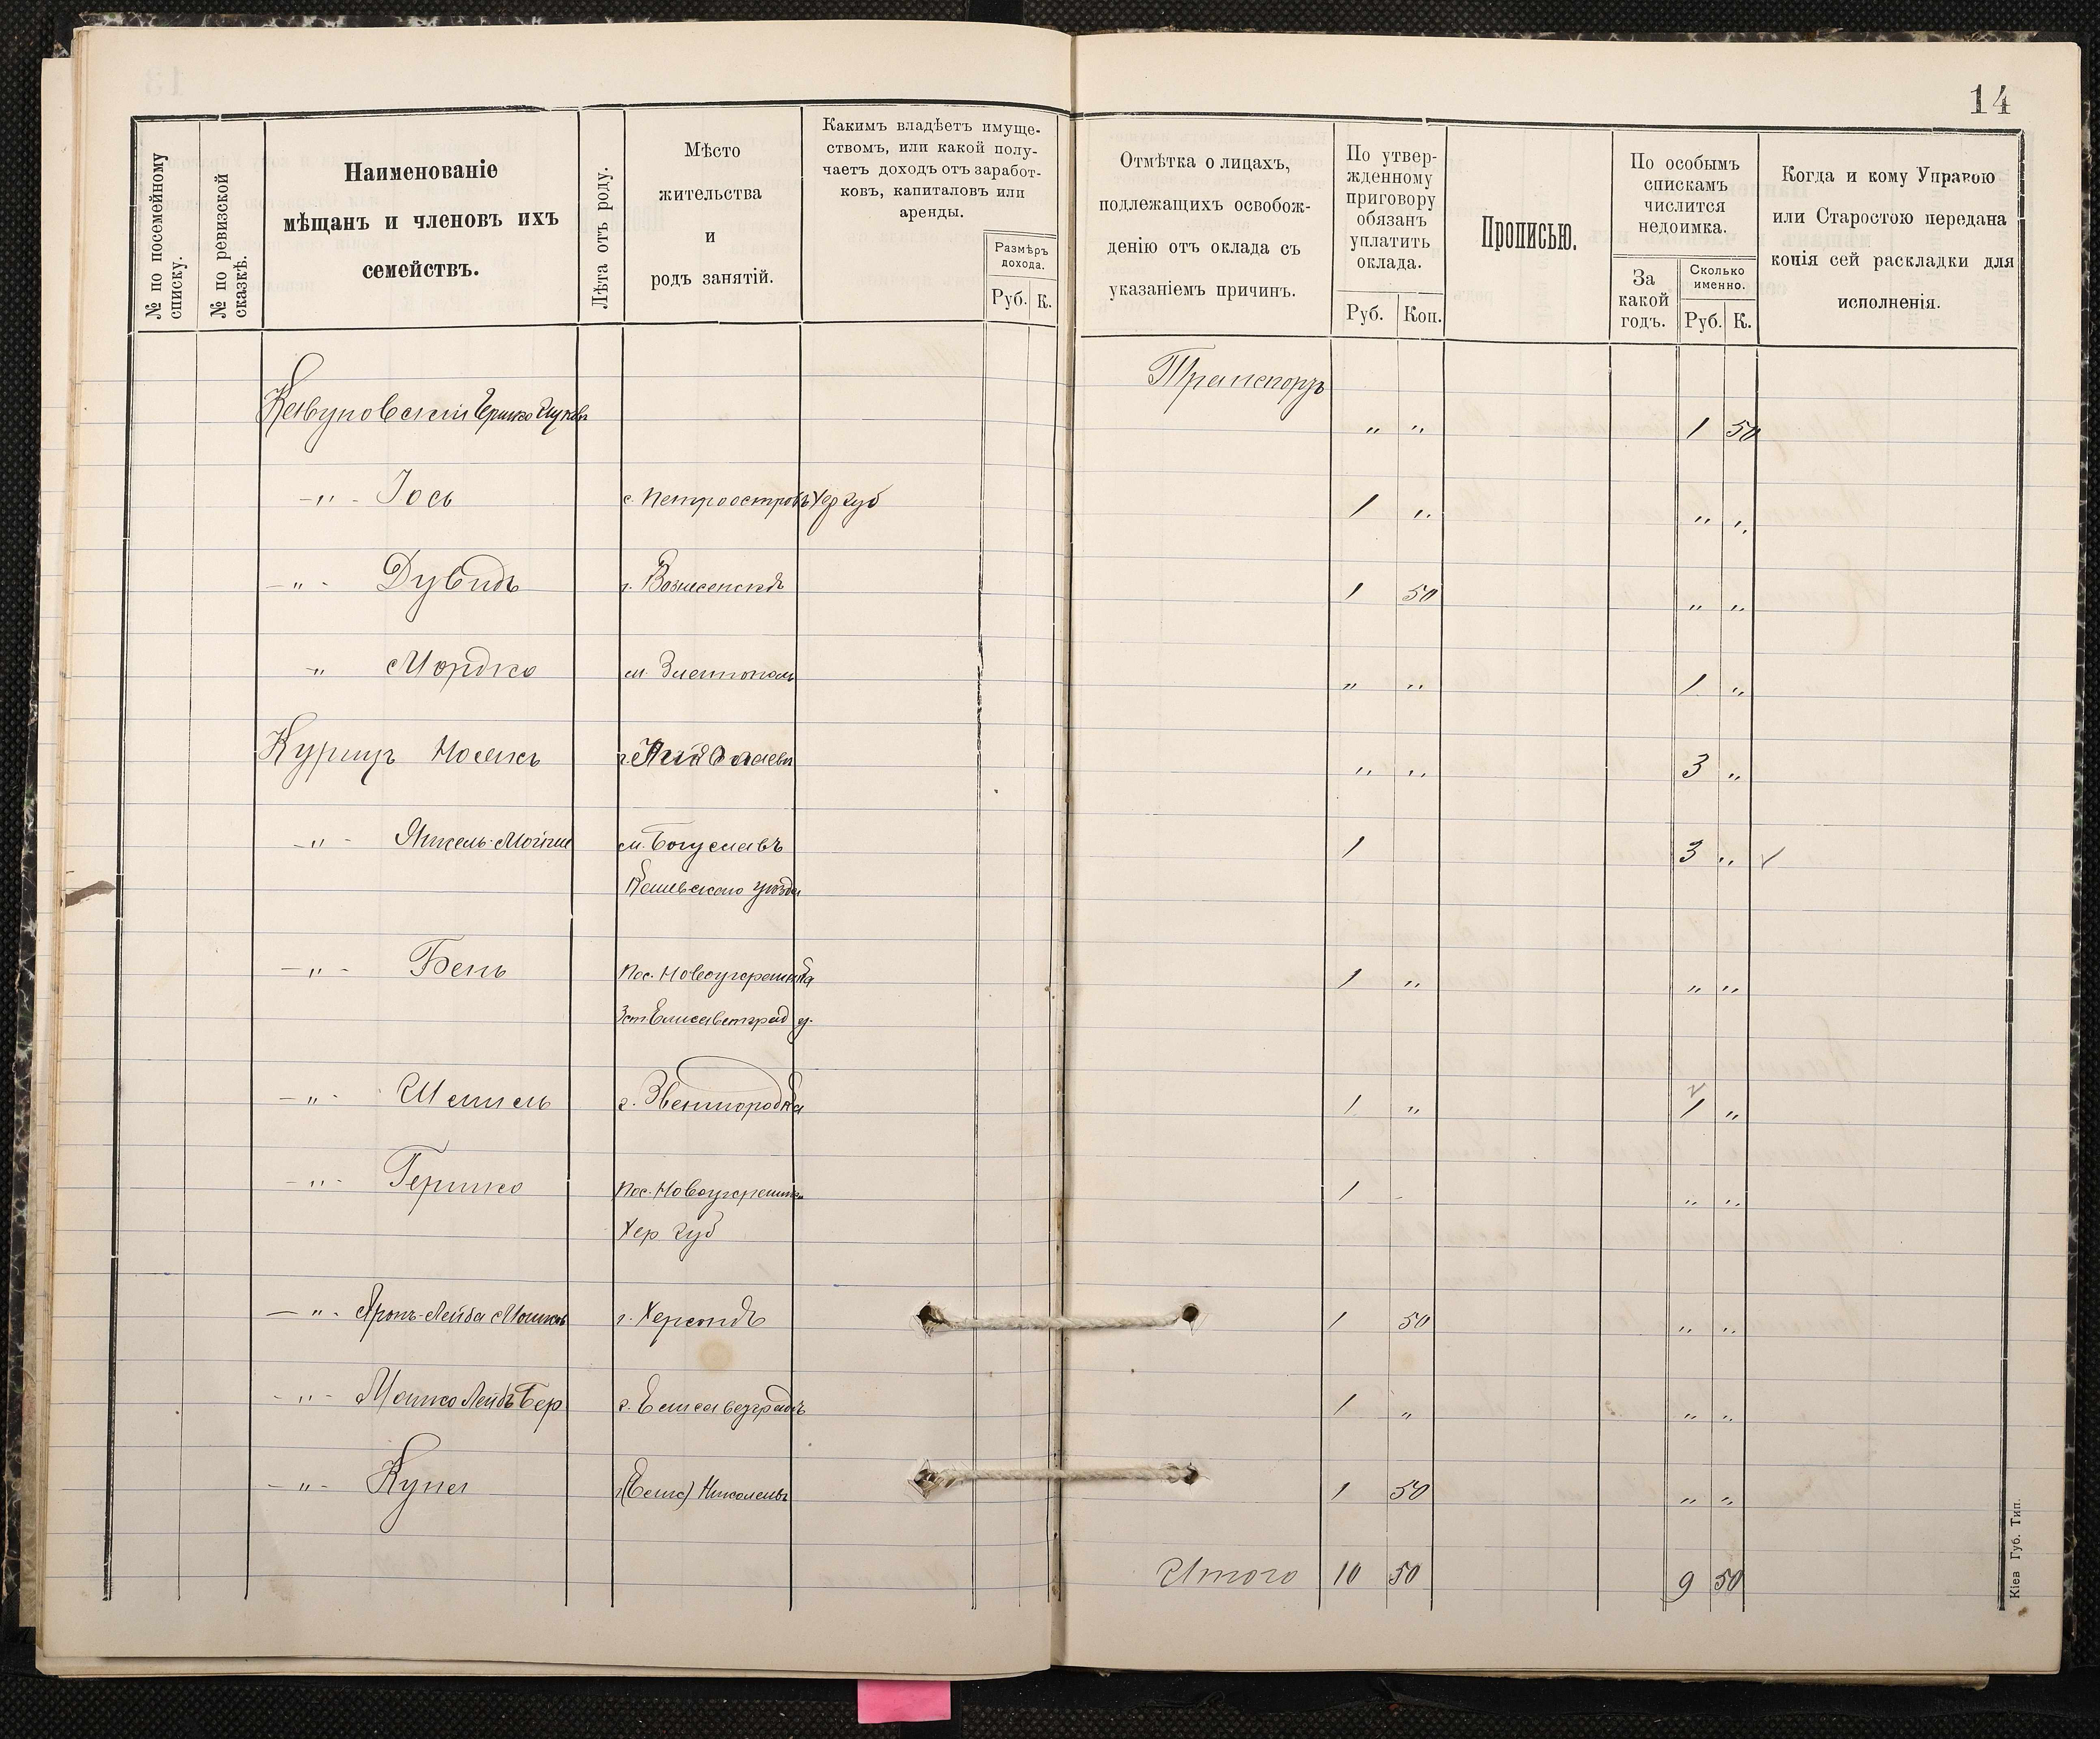 14
№ по посемейному списку.
№ по ревизской сказкѣ.
Наименованіе
мѣщанъ и членовъ ихъ
семействъ.
Лѣта отъ роду.
Мѣсто
жительства
и
родъ занятій.
Какимъ владѣетъ имуще-
ствомъ, или какой полу-
чаетъ доходъ отъ заработ-
ковъ, капиталовъ или
аренды.
Размѣръ
дохода.
Руб. К.
Отмѣтка о лицахъ,
подлежащихъ освобож-
денію отъ оклада съ
указаніемъ причинъ.
По утвер-
жденному
приговору
обязанъ
уплатить
оклада.
Руб. Коп.
Прописью.
По особымъ
спискамъ
числится
недоимка.
За
какой
годъ.
Сколько
именно.
Руб. К.
Когда и кому Управою
или Старостою передана
копія сей раскладки для
исполненія.
Транспортъ
Гершко " " 1 50
-"- Іось с. Петроостровъ Хер губ 1 " " "
-"- Дувидъ г. Вознесенскъ 1 50 " "
" Мордко м. Златополь " " 1 "
Курицъ Носекъ " " 3 "
-"- Янкель-Мойше м. Богуславъ 1 3 "
Каневскаго уѣзда
-"- Бень Пос. Новоукраинка 1 " " "
Елисаветград у.
-"- Шмиль г. Звенигородка 1 " 1 "
-"- Гершко Пос. Новоукраинка 1 - " "
Хер губ
-"- Аронъ-Лейба Мошков г. Херсонъ 1 50 " "
-"- Мошко Лейбъ Бер г. Елисаветградъ 1 " " "
-"- Куна Николаевъ 1 50 " "
Итого 10 50 9 50
Кіев Губ. Тип.